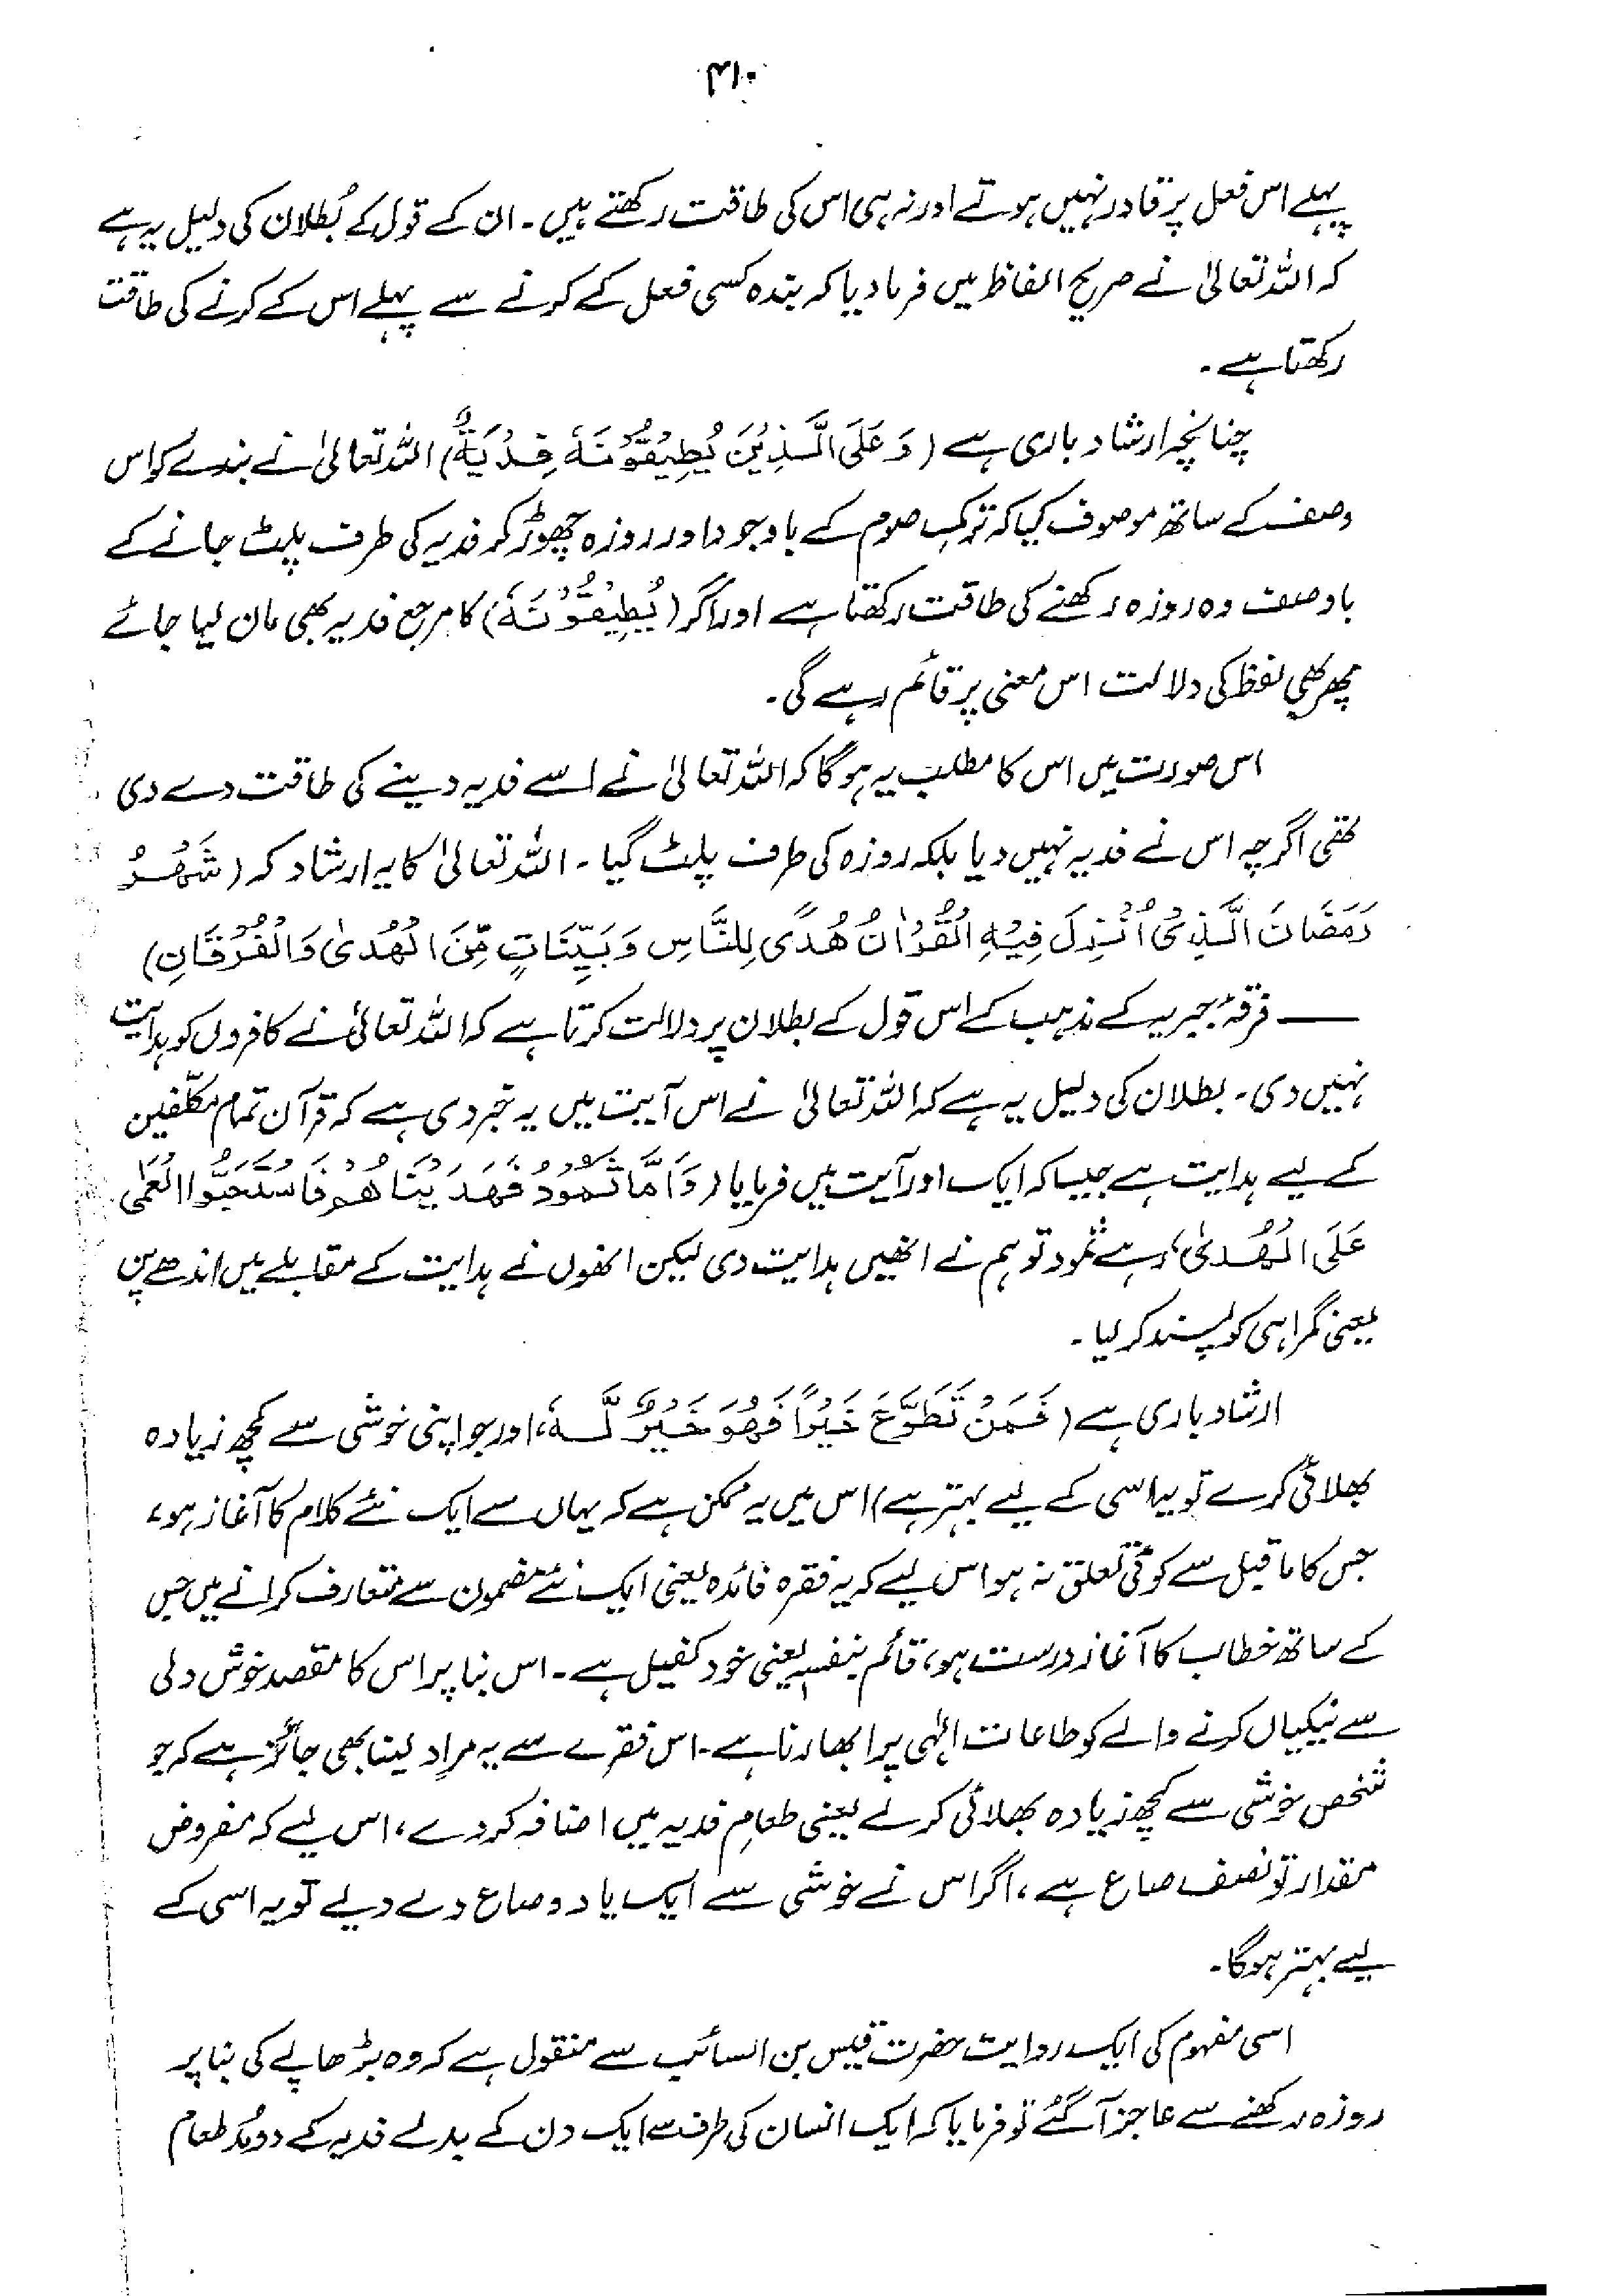 ۴۱۰
پہلے اس فعل پر قادر نہیں ہوتے اور نہ ہی اس کی طاقت رکھتے ہیں۔ ان کے قول کے بُطلان کی دلیل یہ ہے
کہ اللہ تعالیٰ نے صریح الفاظ میں فرما دیا کہ بندہ کسی فعل کے کرنے سے پہلے اس کے کرنے کی طاقت
رکھتا ہے۔
چنانچہ ارشاد باری ہے (وَعَلَی الَّذِیْنَ یُطِیْقُوْنَہٗ فِدْیَۃٌ) اللہ تعالیٰ نے بندے کو اس
وصف کے ساتھ موصوف کیا کہ ترکِ صوم کے باوجود اور روزہ چھوڑ کر فدیہ کی طرف پلٹ جانے کے
باوصف وہ روزہ رکھنے کی طاقت رکھتا ہے اور اگر (یُطِیْقُوْنَہٗ) کا مرجع فدیہ بھی مان لیا جائے
پھر بھی لفظ کی دلالت اس معنی پر قائم رہے گی۔
اس صورت میں اس کا مطلب یہ ہوگا کہ اللہ تعالیٰ نے اسے فدیہ دینے کی طاقت دے دی
تھی اگرچہ اس نے فدیہ نہیں دیا بلکہ روزہ کی طرف پلٹ گیا۔ اللہ تعالیٰ کا یہ ارشاد کہ (شَھْرُ
رَمَضَانَ الَّذِیْ اُنْزِلَ فِیْہِ الْقُرْاٰنُ ھُدًی لِلنَّاسِ وَبَیِّنَاتٍ مِّنَ الْھُدیٰ وَالْفُرْقَانِ)
—— فرقۂ جبریہ کے مذہب کے اس قول کے بطلان پر دلالت کرتا ہے کہ اللہ تعالیٰ نے کافروں کو ہدایت
نہیں دی۔ بطلان کی دلیل یہ ہے کہ اللہ تعالیٰ نے اس آیت میں یہ خبر دی ہے کہ قرآن تمام مکلّفین
کے لیے ہدایت ہے جیسا کہ ایک اور آیت میں فرمایا (وَاَمَّا ثَمُوْدُ فَھَدَیْنَاھُمْ فَاسْتَحَبُّوا الْعَمٰی
عَلَی الْھُدیٰ، رہے ثمود تو ہم نے انھیں ہدایت دی لیکن انھوں نے ہدایت کے مقابلے میں اندھے پن
یعنی گمراہی کو پسند کر لیا۔
ارشاد باری ہے (فَمَنْ تَطَوَّعَ خَیْرًا فَھُوَ خَیْرٌ لَّہٗ، اور جو اپنی خوشی سے کچھ زیادہ
بھلائی کرے تو یہ اسی کے لیے بہتر ہے) اس میں یہ ممکن ہے کہ یہاں سے ایک نئے کلام کا آغاز ہو،
جس کا ماقبل سے کوئی تعلق نہ ہو اس لیے کہ یہ فقرہ فائدہ یعنی ایک نئے مضمون سے متعارف کرانے میں جس
کے ساتھ خطاب کا آغاز درست ہو، قائم بنفسہٖ یعنی خود کفیل ہے۔ اس بنا پر اس کا مقصد خوش دلی
سے نیکیاں کرنے والے کو طاعات الٰہی پر ابھارنا ہے۔ اس فقرے سے یہ مراد لینا بھی جائز ہے کہ جو
شخص خوشی سے کچھ زیادہ بھلائی کرلے یعنی طعامِ فدیہ میں اضافہ کر دے، اس لیے کہ مفروض
مقدار تو نصف صاع ہے، اگر اس نے خوشی سے ایک یا دو صاع دے دیے تو یہ اسی کے
لیے بہتر ہوگا۔
اسی مفہوم کی ایک روایت حضرت قیس بن السائب سے منقول ہے کہ وہ بڑھاپے کی بنا پر
روزہ رکھنے سے عاجز آ گئے تو فرمایا کہ ایک انسان کی طرف سے ایک دن کے بدلے فدیہ کے دو مُد طعام